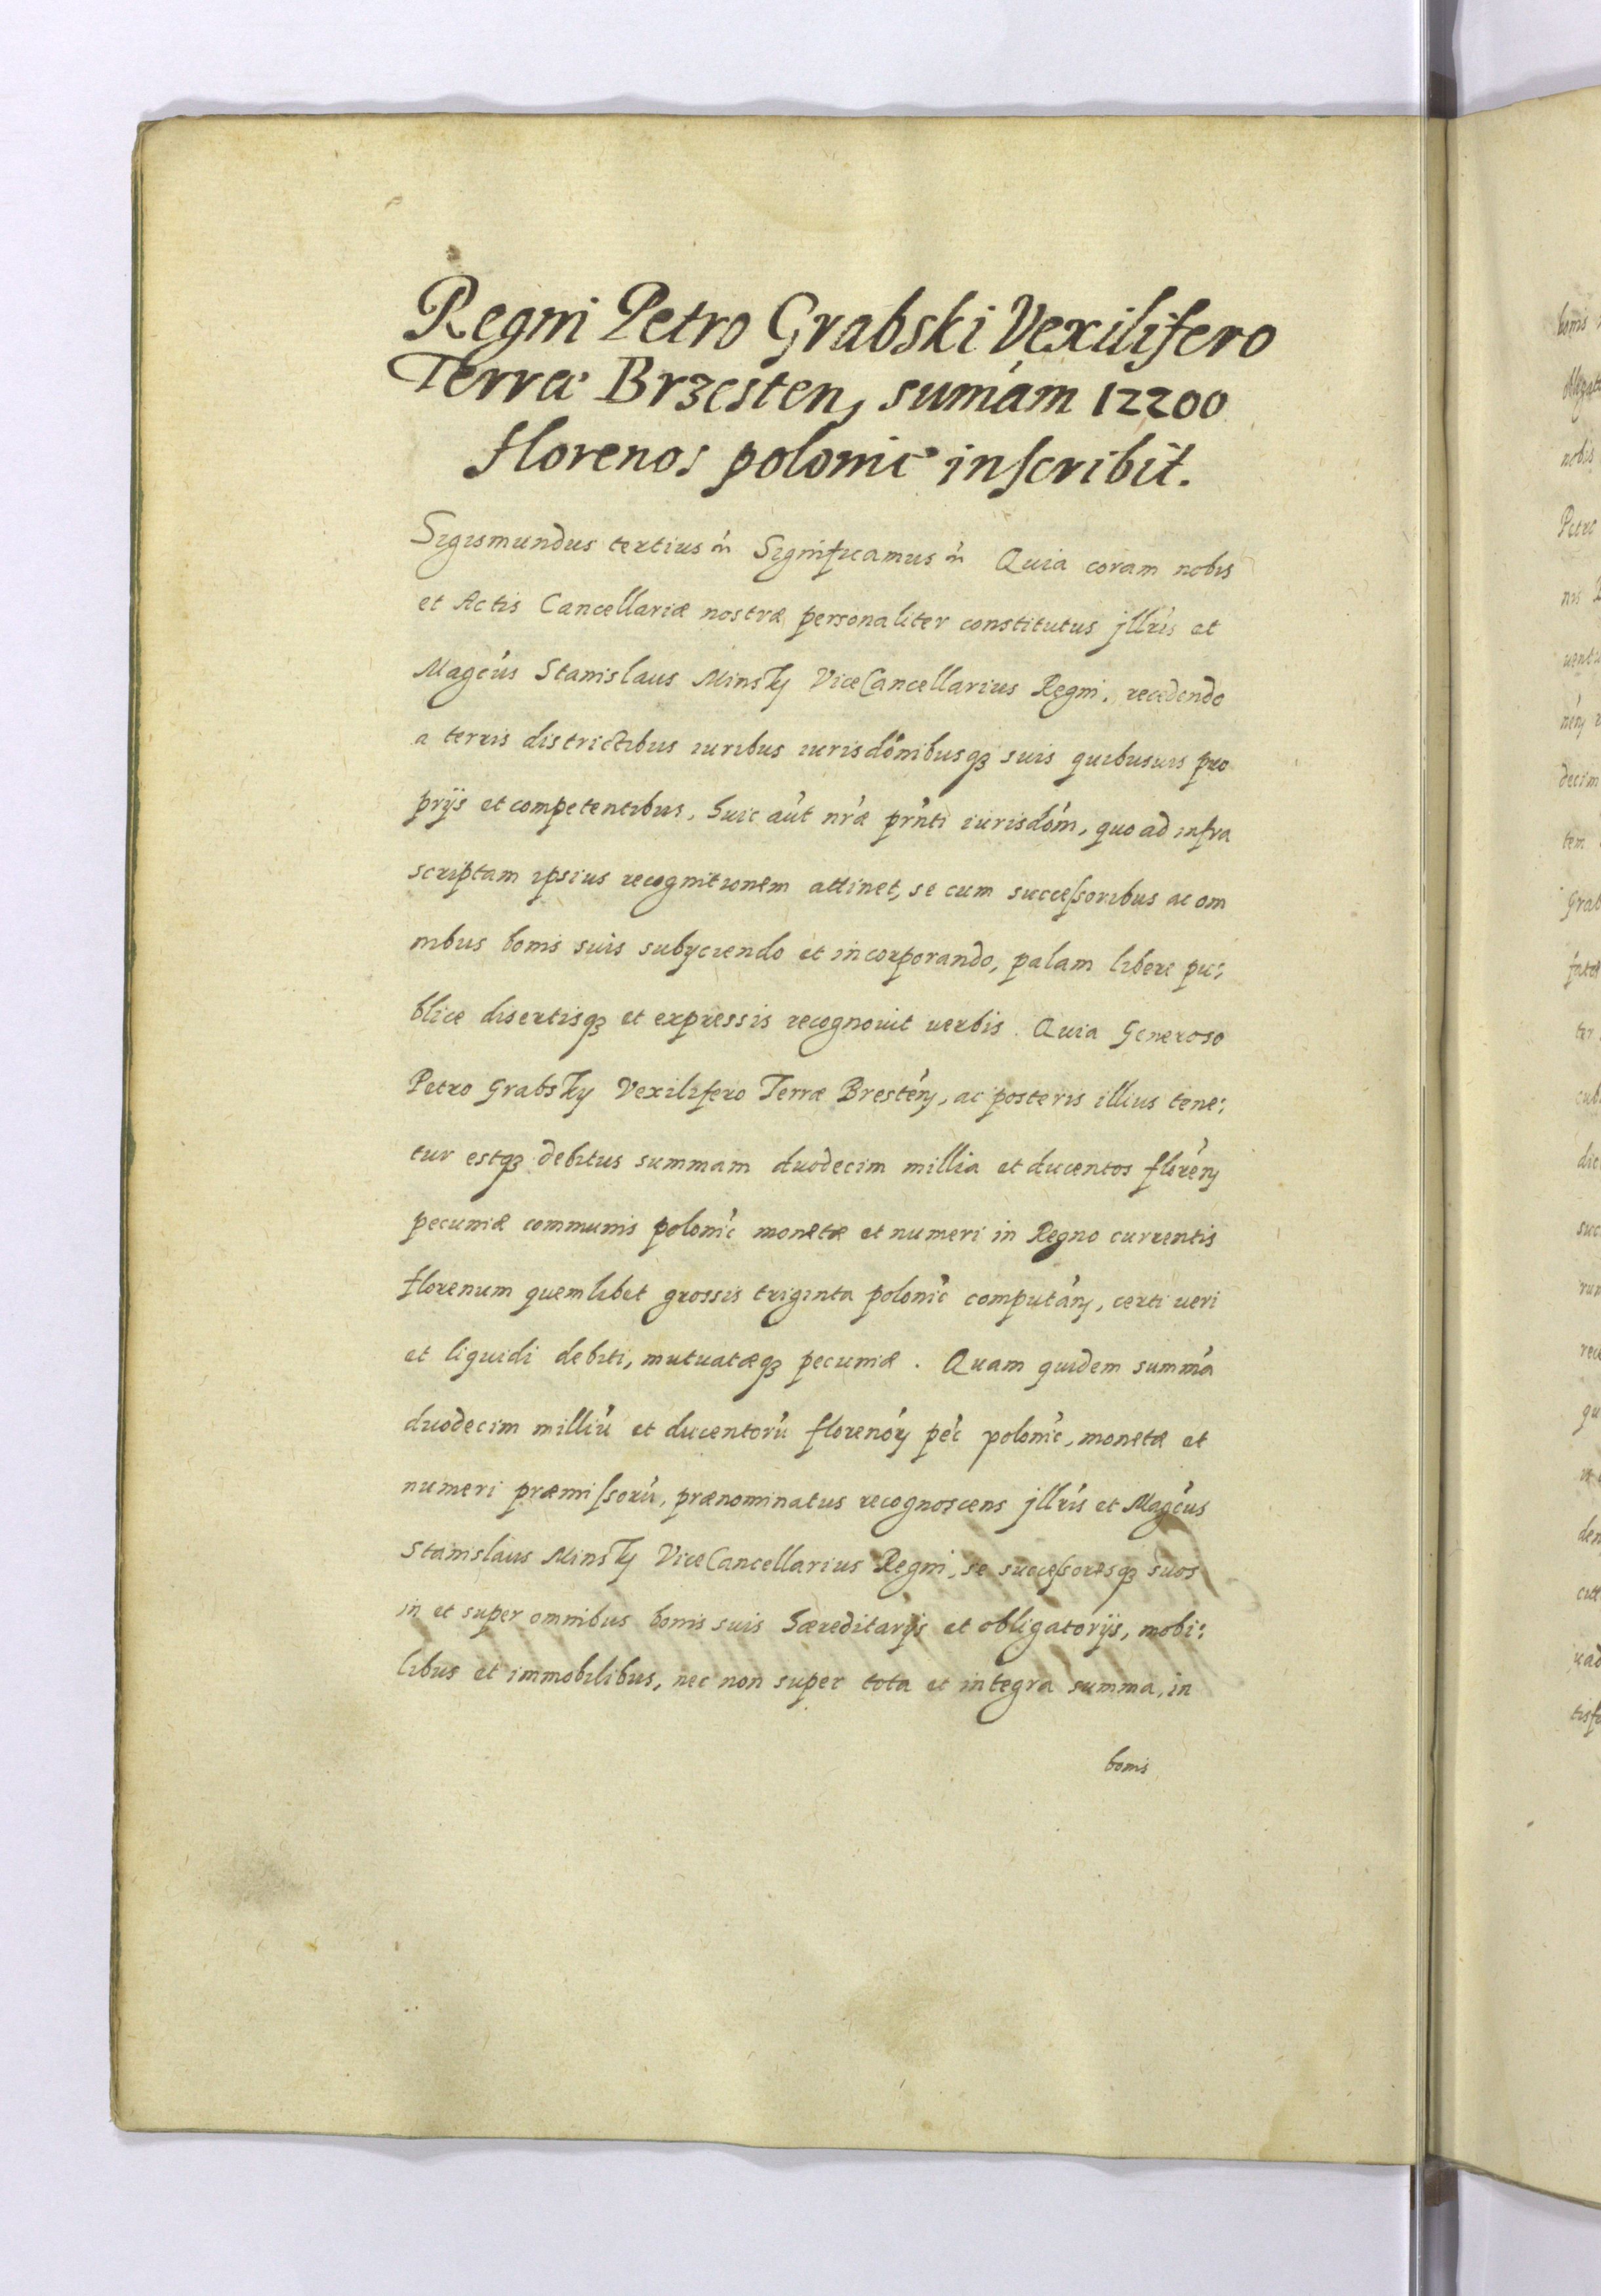 Regni Petro Grabski Vexilifero
Terræ Brzesten, sumḿam 12200
florenos polonic̓ inscribit.
Sigismundus tertius ḿ Significamus ḿ Quia coram nobis
et Actis Cancellariæ nostræ personaliter constitutus jllr̓is et
Magc̓us Stanislaus Minsky ViceCancellarius Regni, recedendo
a terris districtibus iuribus iurisdo̓nibusqꝫ suis quibusuis pro
prijs et competentibus, huic au̓t nr̓æ prn̓ti iurisdo̓ni, quo ad infra
scriptam ipsius recognitionem attinet, se cum successoribus ac om
nibus bonis suis subijciendo et incorporando, palam libere pu:
blice disertisqꝫ et expressis recognouit uerbis. Quia Generoso
Petro Grabsky Vexilifero Terræ Breste̓n, ac posteris illius tene:
tur estqꝫ debitus summam duodecim millia et ducentos flore̓n
pecuniæ communis polonic̓ monetæ et numeri in Regno currentis
florenum quemlibet grossis triginta polonic̓ computa̓n, certi ueri
et liquidi debiti, mutuatæqꝫ pecuniæ. Quam quidem summa̓
duodecim milliu̓ et ducentoru̓ floreno̓ꝝ pec̓ polonic̓, monetæ et
numeri præmissoru̓, prænominatus recognoscens jllr̓is et Magc̓us
Stanislaus Minsky ViceCancellarius Regni, se successoresqꝫ suos
in et super omnibus bonis suis hæreditarijs et obligatorijs, mobi:
libus et immobilibus, nec non super tota et integra summa, in
bonis